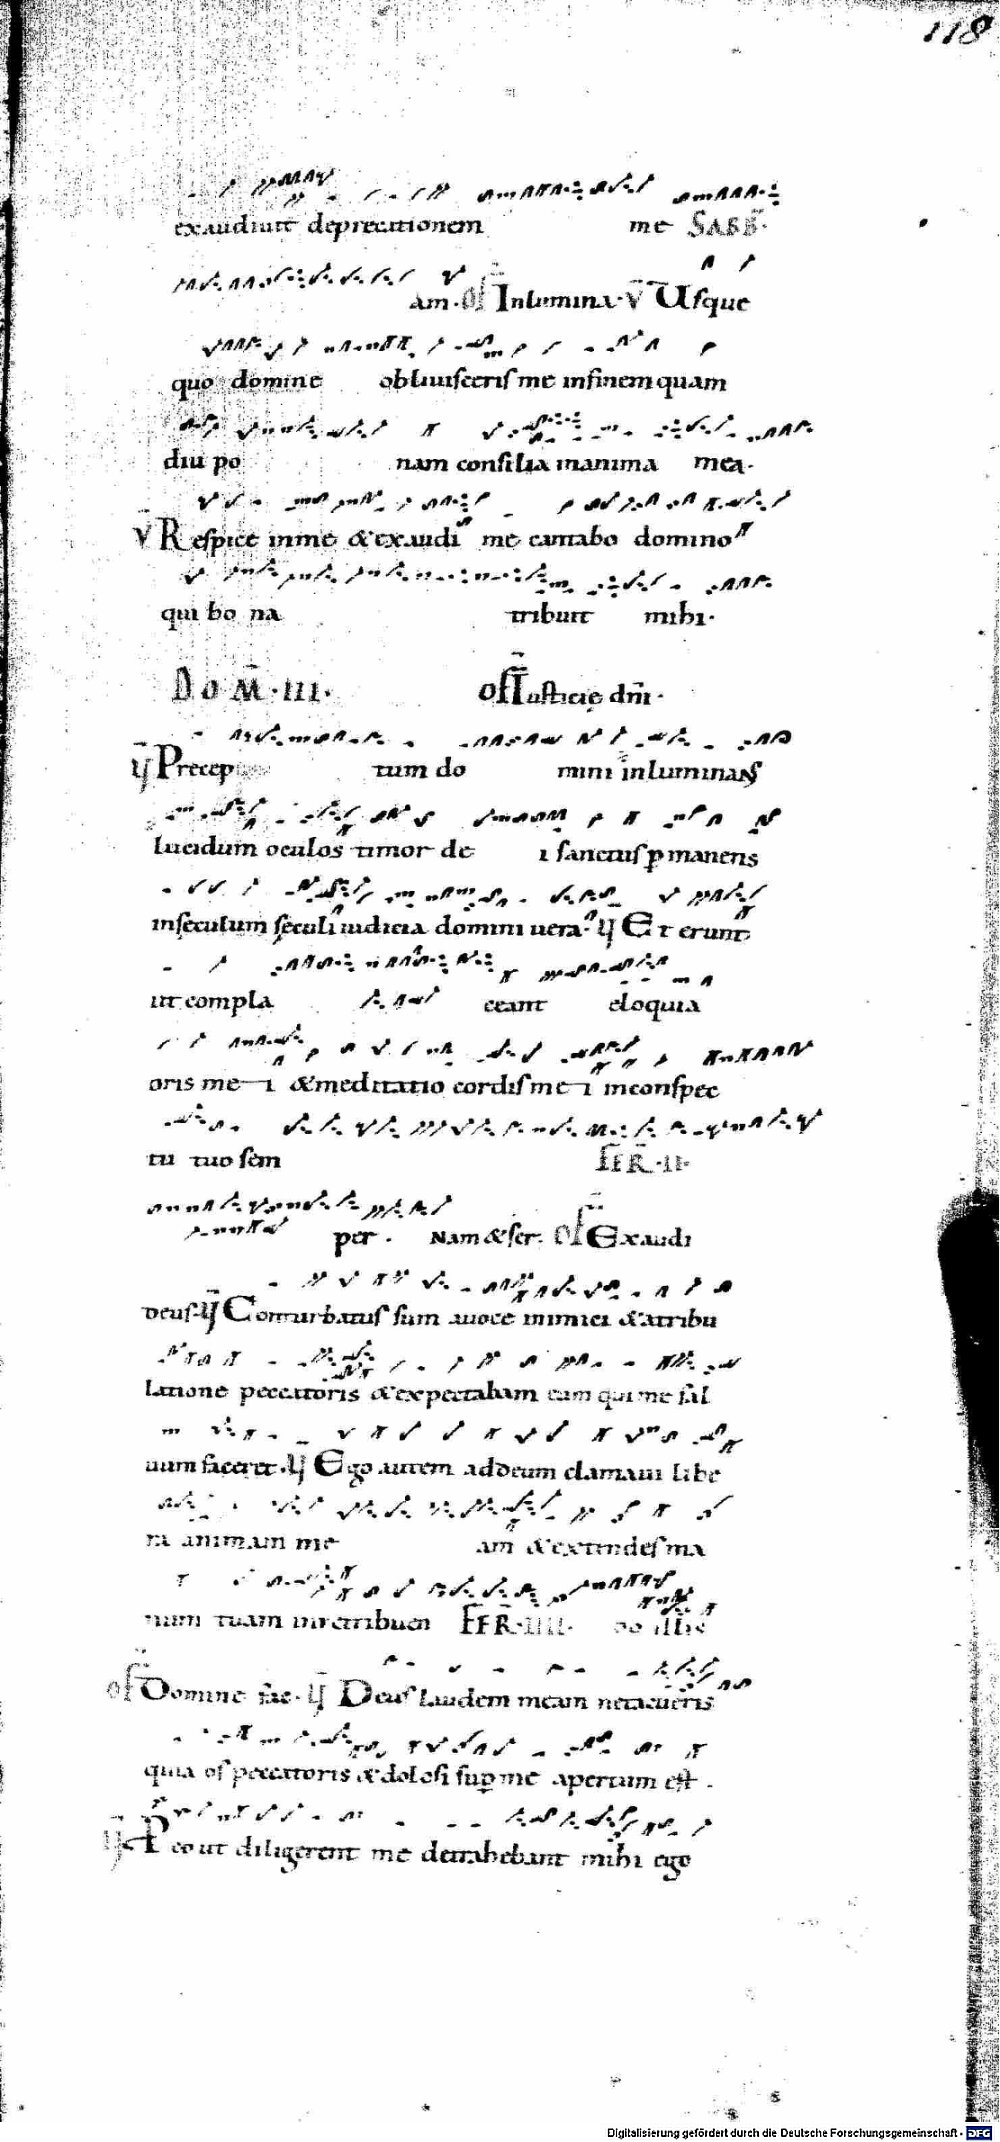 118
exaudiuit deprecationem me SABB̄.
am. Of Inlumina. V̄ Usque
quo domine obliuisceris me infinem quam
diu po nam consilia inanima mea.
V̄ Respice inme & exaudi me cantabo domino
qui bo na tribuit mihi.
DOM̄. III. Of Iusticie dn̄i.
Precep tum do mini inluminans
lucidum oculos timor de i sanctus ꝑmanens
insęculum sęculi iudicia domini uera. Et erunt
ut compla ceant eloquia
oris me i & meditatio cordis me i inconspec
tu tuo sem FER̄. II.
per. Nam & ser. Of Exaudi
deus. Conturbatus sum auoce inimici & atribu
latione peccatoris & expectabam eum qui me sal
uum faceret. Ego autem addeum clamaui libe
ra animam me am & extendes ma
num tuam inretribuen FER̄. IIII. do illis
Of Domine fac. Deus laudem meam netacueris
quia os peccatoris & dolosi suꝑme apertum est.
Pro eo ut diligerent me detrahebant mihi ego
Digitalisierung gefördert durch die Deutsche Forschungsgemeinschaft - DFG